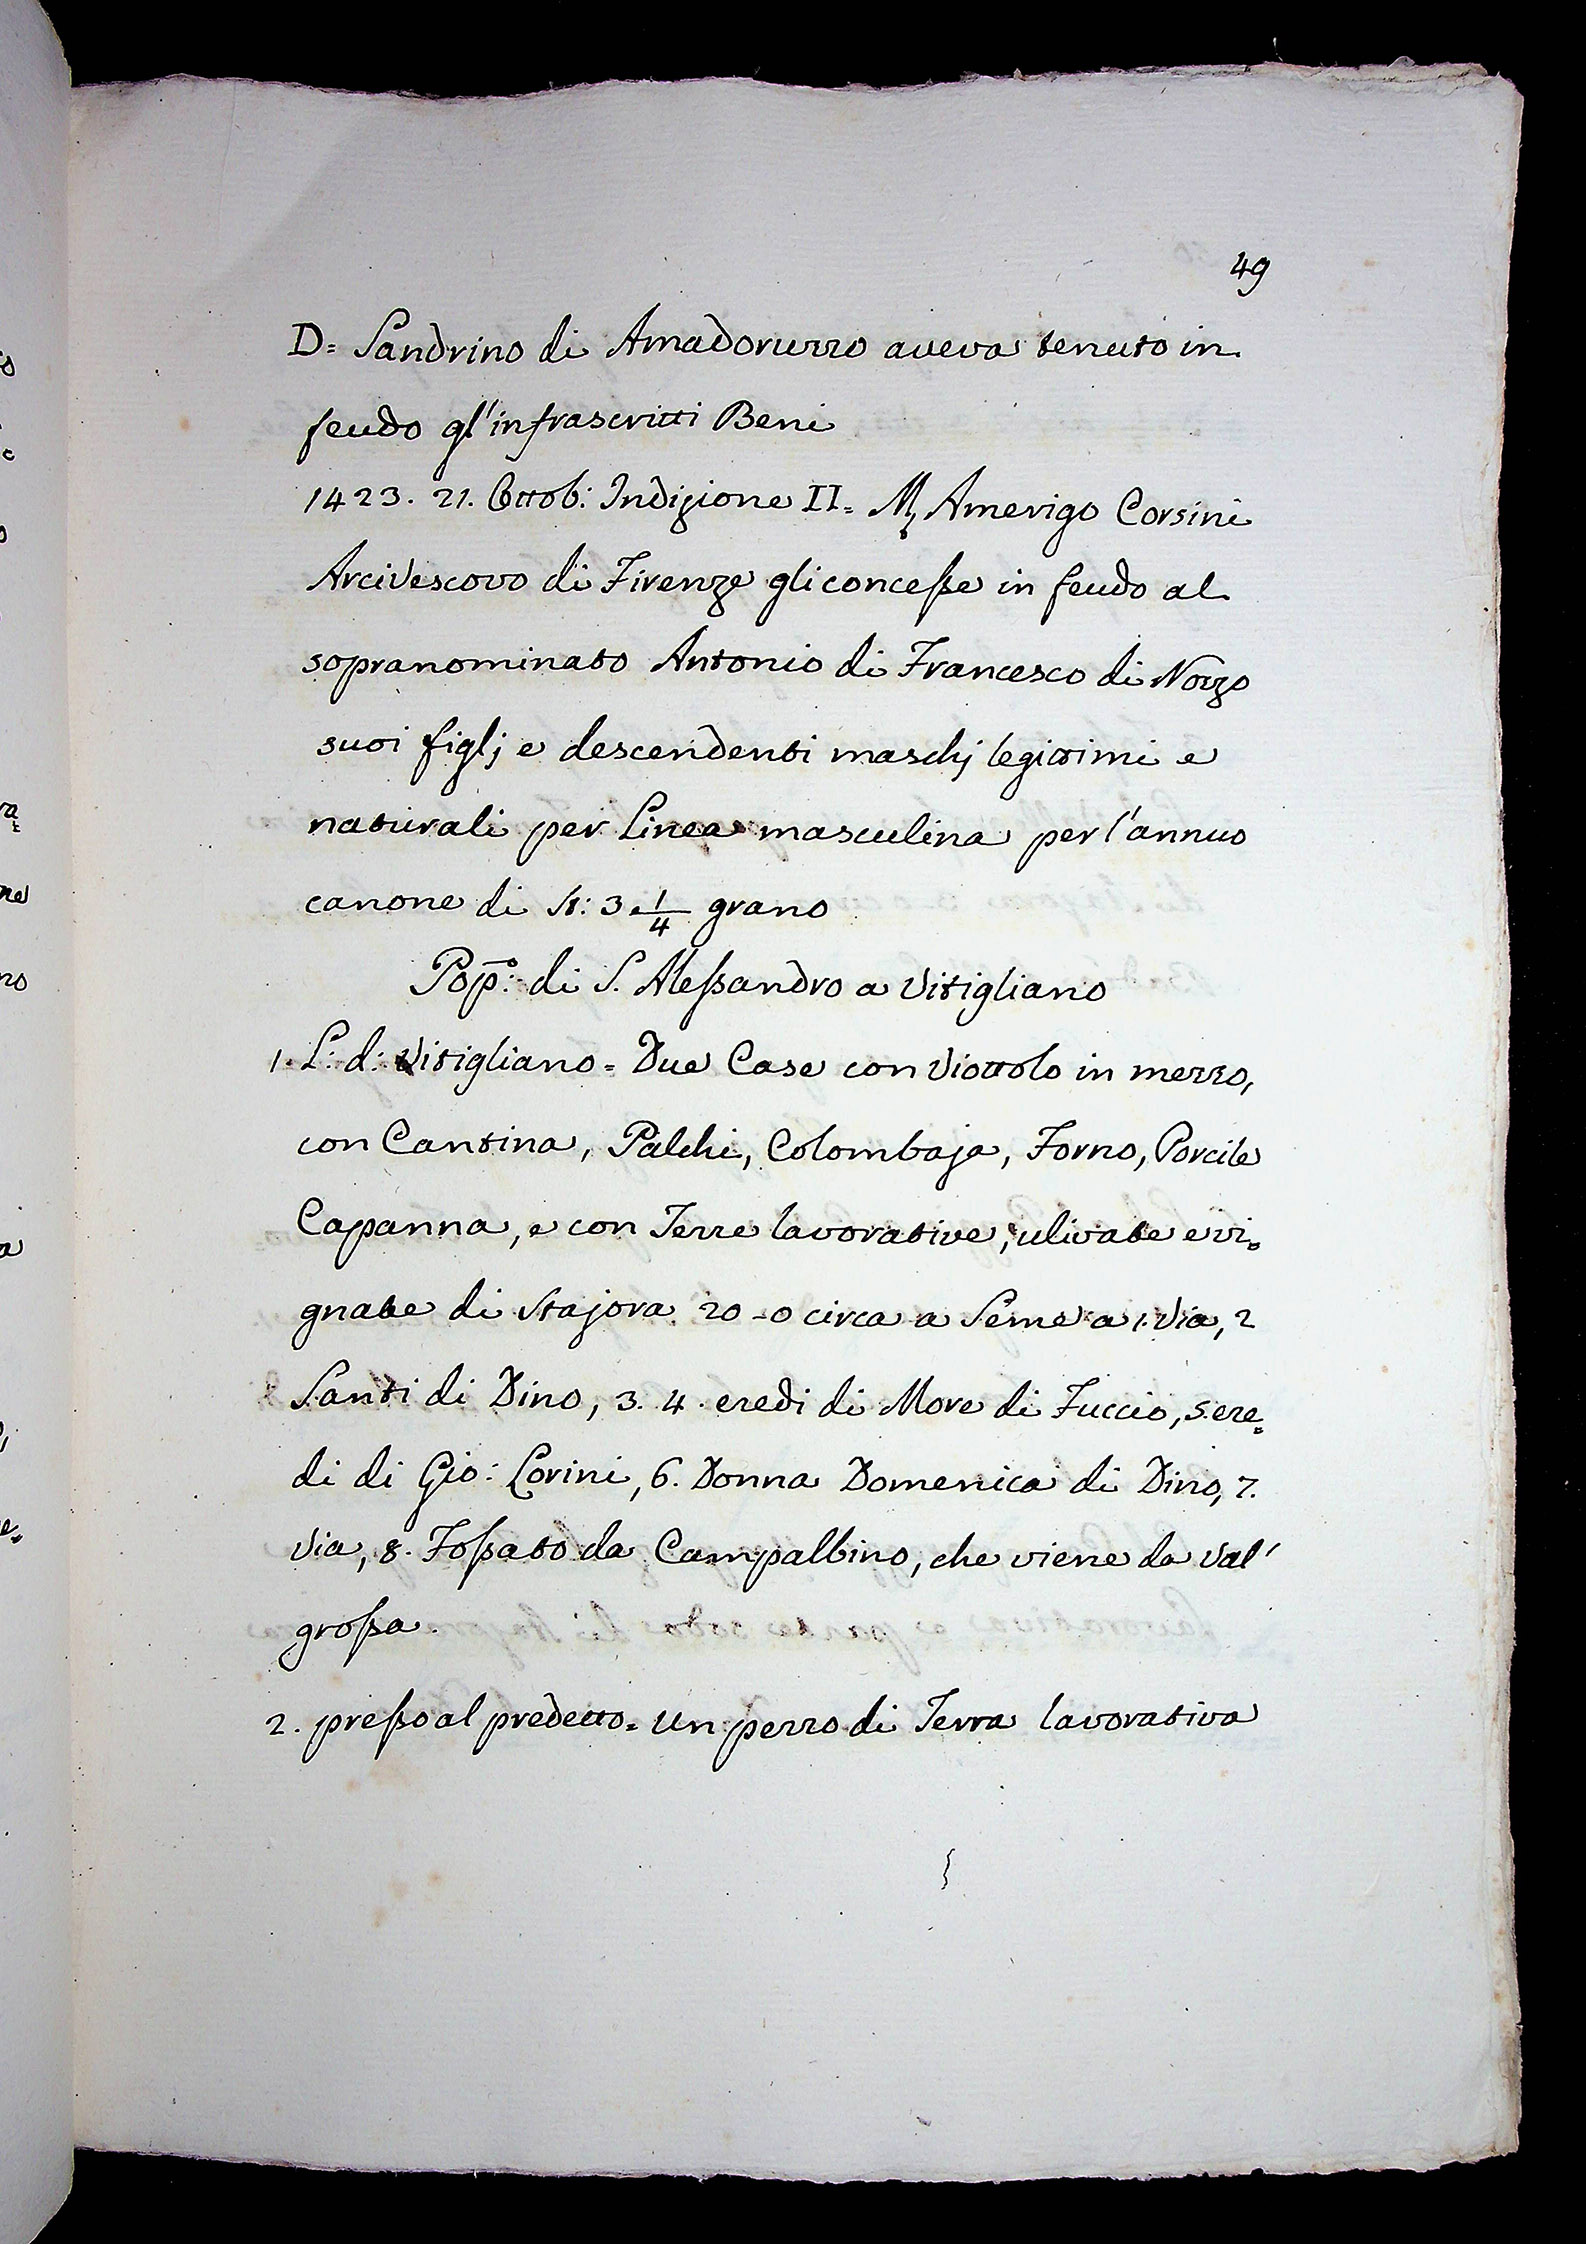 49
D= Sandrino di Amadoruzzo aveva tenuto in
feudo gl'infrascritti Beni
1423. 21. Ottob: Indizione II= M. Amerigo Corsini
Arcivescovo di Firenze gli concesse in feudo al
sopranominato Antonio di Francesco di Nozzo
suoi figlj e descendenti maschj legittimi e
naturali per Linea masculina per l'annuo
canone di St: 3 1/4 grano
Pop:o di S. Alessandro a Vitigliano
1. L: d: Vitigliano = Due Case con Viottolo in mezzo,
con Cantina, Palchi, Colombaja, Forno, Porcile
Capanna, e con Terre lavorative, ulivate e vi=
gnate di Stajora 20-0 circa a Seme a 1. Via, 2
Santi di Dino, 3. 4. eredi di More di Fuccio, 5. ere=
di di Gio: Lorini, 6. Donna Domenica di Dino, 7.
Via, 8. Fossato da Campalbino, che viene da Val'
grossa.
2. presso al predetto = Un pezzo di Terra lavorativa